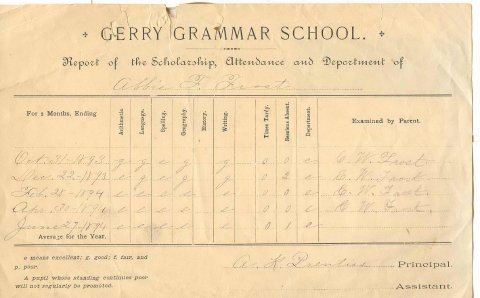 GERRY GRAMMAR SCHOOL.
Report of the Scholarship, Attendance and Deportment of
Abbie F. Frost
For 2 Months, Ending Arithmetic. Language. Spelling. Geography. History. Writing. Times Tardy. Sessions Absent. Deportment. Examined by Parent.
Oct. 31 1893 g g e g g 0 0 e C. W. Frost
Dec. 22 1893 e g e g g 0 2 e C. W. Frost
Feb. 28 1894 e e e e e 0 0 e C. W. Frost
Apr. 30 1894 e e e e e 0 0 e C W. Frost.
June 27 1894 e e e e e 0 1 e
Average for the Year.
e means excellent; g. good; f. fair, and
p. poor.
A. K. Prentiss Principal.
A pupil whose standing continues poor
will not regularly be promoted.
Assistant.